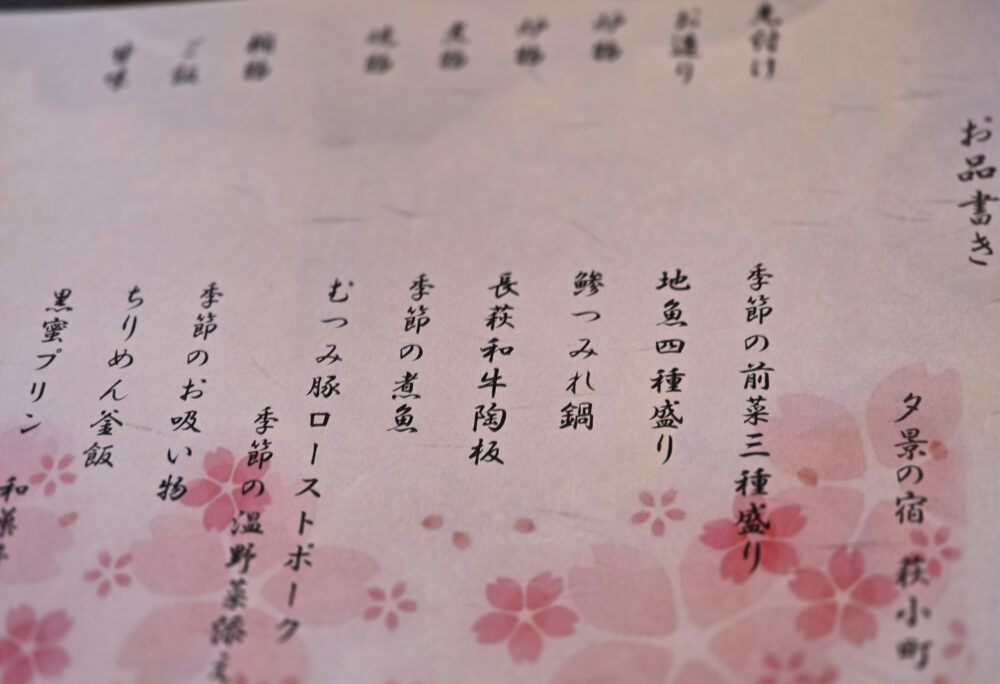 お品書き
夕景の宿 萩小町
先付け 季節の前菜三種盛り
お造り 地魚四種盛り
鯵つみれ鍋
長萩和牛陶板
季節の煮魚
むつみ豚ローストポーク
季節の温野菜添え
季節のお吸い物
ご飯 ちりめん釜飯
黒蜜プリン
和菓子